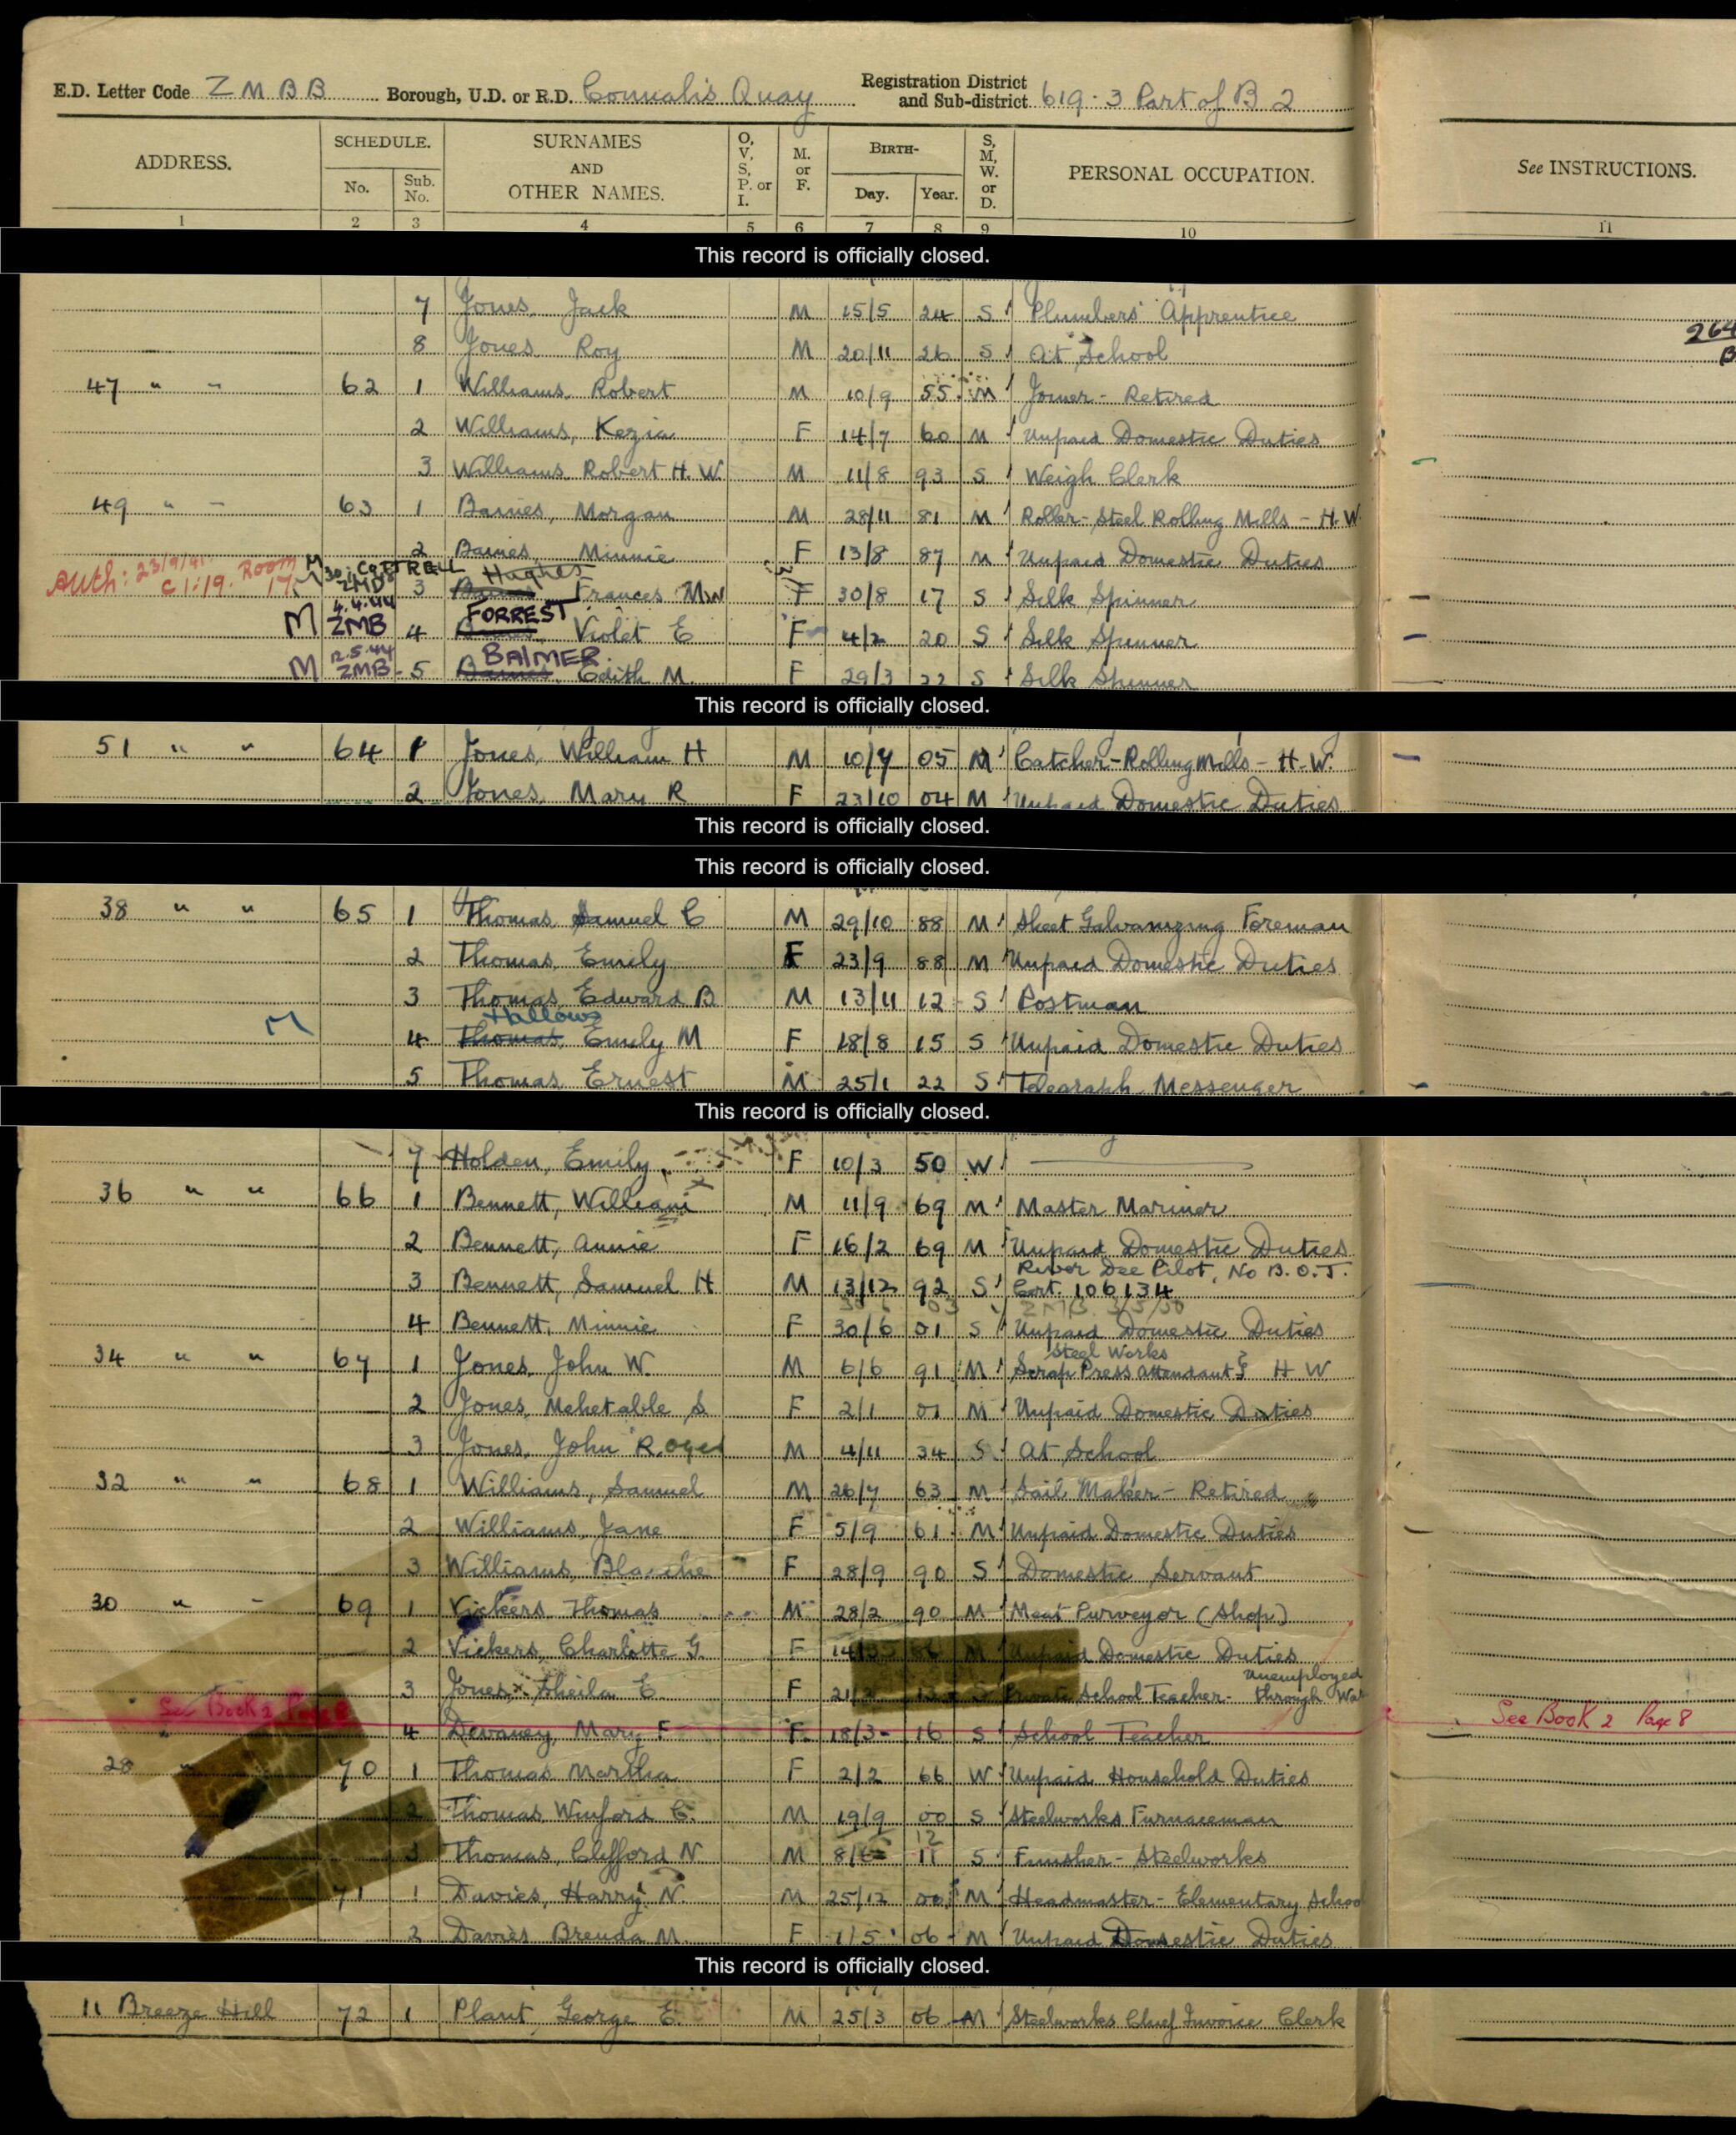 E.D. Letter Code Z M B B Borough, U.D. or R.D. Connalis Quay Registration District and Sub-district 619-3 Part of B 2
ADDRESS. SCHEDULE. No. Sub. No. SURNAMES AND OTHER NAMES. O, V, S, P. or I. M. or F. BIRTH- Day. Year. S, M, W. or D. PERSONAL OCCUPATION. See INSTRUCTIONS.
1 2 3 4 5 6 7 8 9 10 11
This record is officially closed.
7 Jones, Jack M 15/5 24 S Plumbers Apprentice
264
8 Jones Roy M 20/11 26 S At School
B
47 " " 62 1 Williams, Robert M 10/9 55 M Joiner - Retired
2 Williams, Kezia F 14/7 60 M Unpaid Domestic Duties
3 Williams, Robert H. W. M 11/8 93 S Weigh Clerk
49 " " 63 1 Barnes, Morgan M 28/11 81 M Roller - Steel Rolling Mills - H.W.
2 Barnes, Minnie F 13/8 87 M Unpaid Domestic Duties
Auth: 23/9/91 Room M COTTRELL Hughes
C1:19. 17 ZMD 3 Frances M W F 30/8 17 S Silk Spinner
4.4.44 FORREST
M ZMB 4 Violet E F 4/2 20 S Silk Spinner
12.5.44 BALMER
M ZMB 5 Barnes, Edith M. F 29/3 22 S Silk Spinner
This record is officially closed.
51 " " 64 1 Jones, William H M 10/7 05 M Catcher - Rolling Mills - H.W.
2 Jones, Mary R F 23/10 04 M Unpaid Domestic Duties
This record is officially closed.
This record is officially closed.
38 " " 65 1 Thomas, Samuel C M 29/10 88 M Sheet Galvanizing Foreman
2 Thomas, Emily F 23/9 88 M Unpaid Domestic Duties
3 Thomas, Edward B M 13/11 12 S Postman
Hallows
M 4 Thomas, Emily M F 18/8 15 S Unpaid Domestic Duties
5 Thomas, Ernest M 25/1 22 S Telegraph Messenger
This record is officially closed.
7 Holden, Emily F 10/3 50 W
36 " " 66 1 Bennett, William M 11/9 69 M Master Mariner
2 Bennett, Annie F 16/2 69 M Unpaid Domestic Duties
River Dee Pilot, No B.O.T.
3 Bennett, Samuel H M 13/12 92 S Cert. 106134
4 Bennett, Minnie F 30/6 01 S Unpaid Domestic Duties
Steel Works
34 " " 67 1 Jones, John W. M 6/6 91 M Scrap Press Attendant } H W
2 Jones, Mehetable S F 2/1 01 M Unpaid Domestic Duties
3 Jones, John Roger M 4/11 34 S At School
32 " " 68 1 Williams, Samuel M 26/7 63 M Sail Maker - Retired
2 Williams, Jane F 5/9 61 M Unpaid Domestic Duties
3 Williams, Blanche F 28/9 90 S Domestic Servant
30 " " 69 1 Vickers, Thomas M 28/2 90 M Meat Purveyor (Shop)
2 Vickers, Charlotte G. F M Unpaid Domestic Duties
Unemployed
3 Jones, Sheila E. F 21/ 13 S Private School Teacher - through War
See Book 2 Page 8 See Book 2 Page 8
4 Devaney, Mary F F 18/3 16 S School Teacher
28 " 70 1 Thomas Martha F 2/2 66 W Unpaid Household Duties
2 Thomas, Winford C. M 19/9 00 S Steelworks Furnaceman
12
3 Thomas, Clifford N M 8/ 11 S Finisher - Steelworks
71 1 Davies, Harry N. M 25/12 00 M Headmaster - Elementary School
2 Davies Brenda M. F 1/5 06 M Unpaid Domestic Duties
This record is officially closed.
11 Breeze Hill 72 1 Plant, George E. M 25/3 06 M Steelworks Chief Invoice Clerk